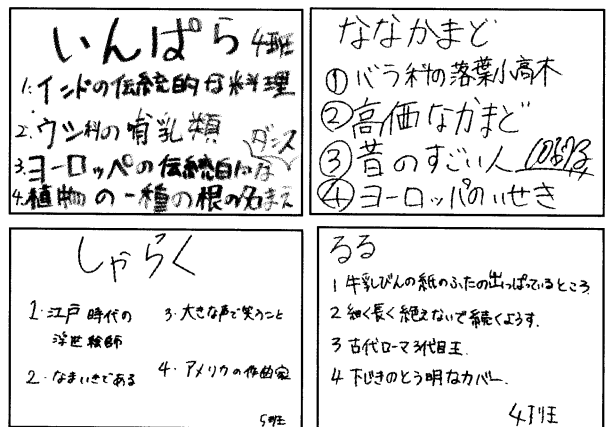 いんぱら 4班
1.インドの伝統的な料理
2.ウシ科の哺乳類
3.ヨーロッペの伝統的なダンス
4.植物の一種の根の名まえ
ななかまど
①バラ科の落葉小高木
②高価なかまど
③昔のすごい人
④ヨーロッパのいせき
しゃらく
1.江戸時代の
浮世絵師
2.なまいきである
3.大きな声で笑うこと
4.アメリカの作曲家
5班
るる
1 牛乳びんの紙のふたの出っぱっているところ
2 細く長く絶えないで続くようす.
3 古代ローマ3代目王.
4 下じきのとう明なカバー.
4班